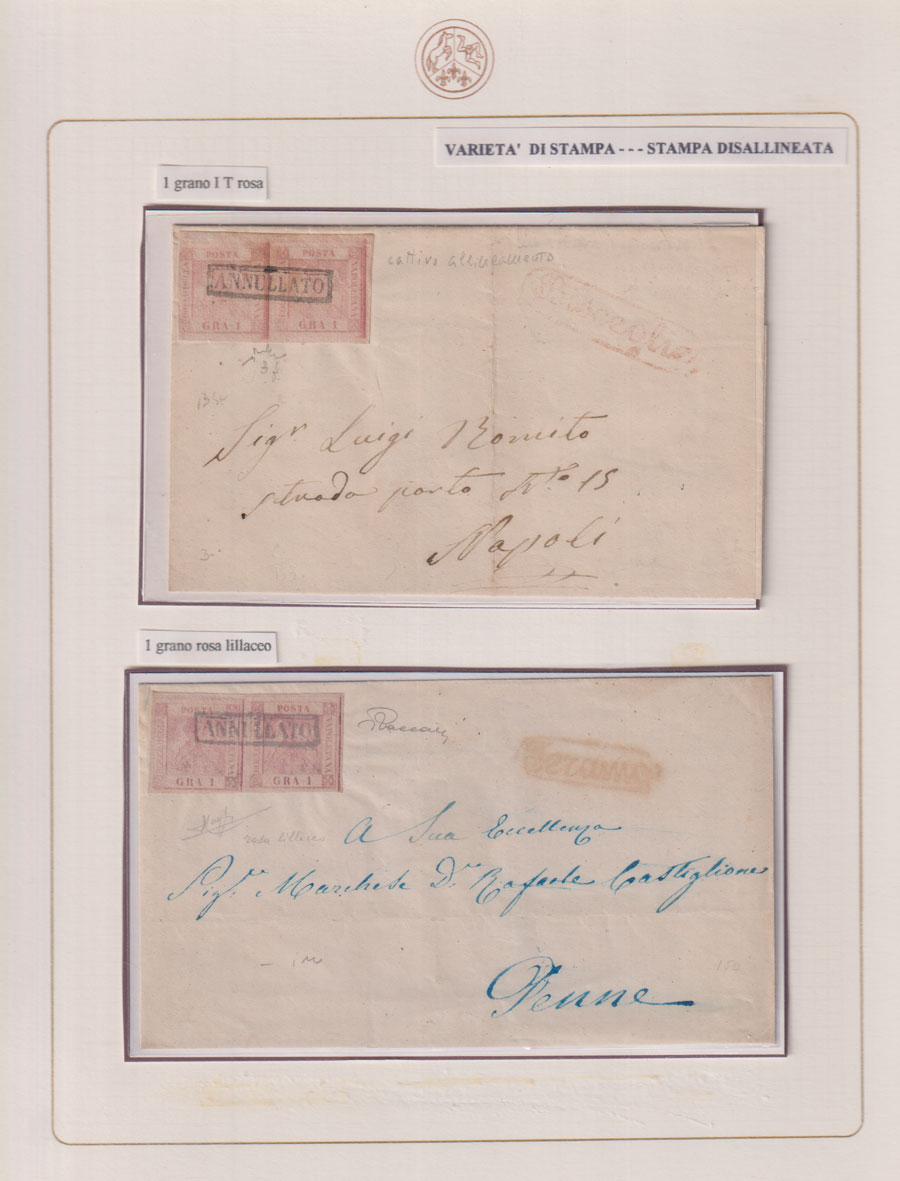 VARIETA' DI STAMPA - - - STAMPA DISALLINEATA
1 grano I T rosa
POSTA POSTA
ANNULLATO
GRA 1 GRA 1
cattivo allineamento
Sigr Luigi Romito
strada porto No 15
Napoli
1 grano rosa lillaceo
POSTA POSTA
ANNULLATO
GRA 1 GRA 1
rosa lillaceo
A Sua Eccellenza
Sigr Marchese Dn Rafaele Castiglione
Penne
150